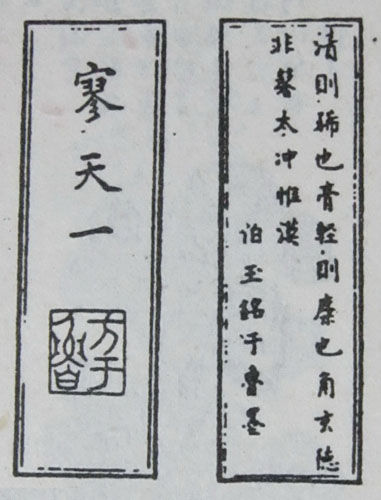 清則稀也膏輕則廉也角玄德
非馨太冲惟漠
伯玉銘于魯墨
寥天一
方于魯